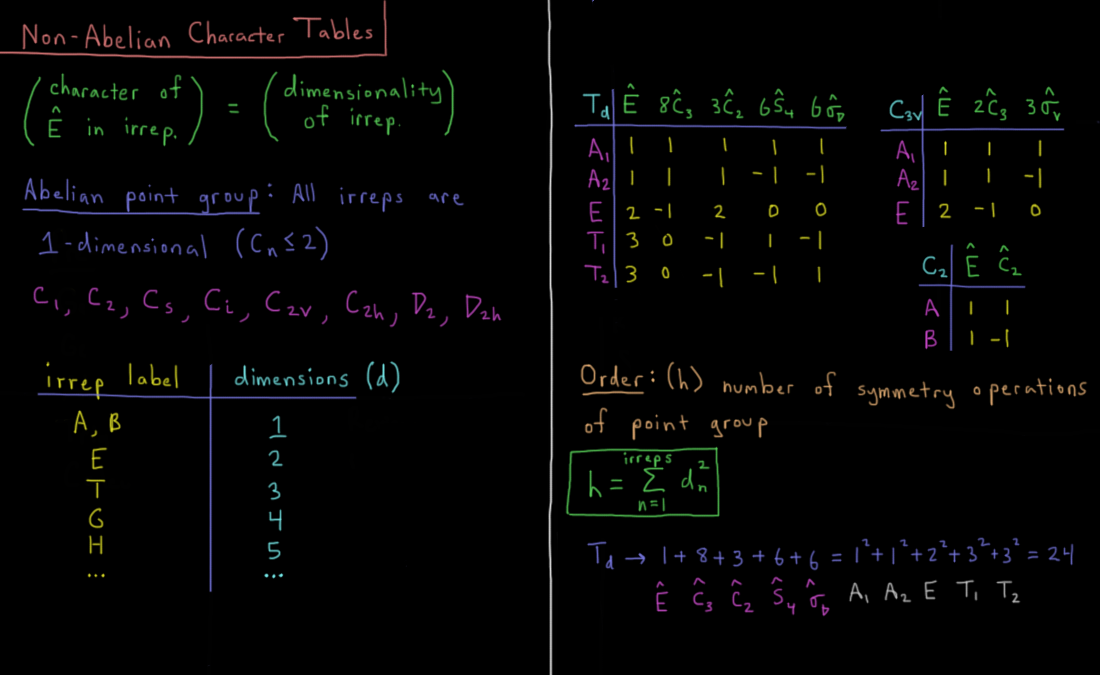 Non-Abelian Character Tables
(character of Ê in irrep.) = (dimensionality of irrep.)
Abelian point group: All irreps are
1-dimensional (Cn ≤ 2)
C₁, C₂, Cs, Ci, C₂v, C₂h, D₂, D₂h
irrep label | dimensions (d)
A, B | 1
E | 2
T | 3
G | 4
H | 5
... | ...
Td | Ê 8Ĉ₃ 3Ĉ₂ 6Ŝ₄ 6σ̂D
A₁ | 1 1 1 1 1
A₂ | 1 1 1 -1 -1
E | 2 -1 2 0 0
T₁ | 3 0 -1 1 -1
T₂ | 3 0 -1 -1 1
C₃v | Ê 2Ĉ₃ 3σ̂v
A₁ | 1 1 1
A₂ | 1 1 -1
E | 2 -1 0
C₂ | Ê Ĉ₂
A | 1 1
B | 1 -1
Order: (h) number of symmetry operations
of point group
h = Σ dn² (irreps, n=1)
Td → 1 + 8 + 3 + 6 + 6 = 1² + 1² + 2² + 3² + 3² = 24
Ê Ĉ₃ Ĉ₂ Ŝ₄ σ̂D A₁ A₂ E T₁ T₂